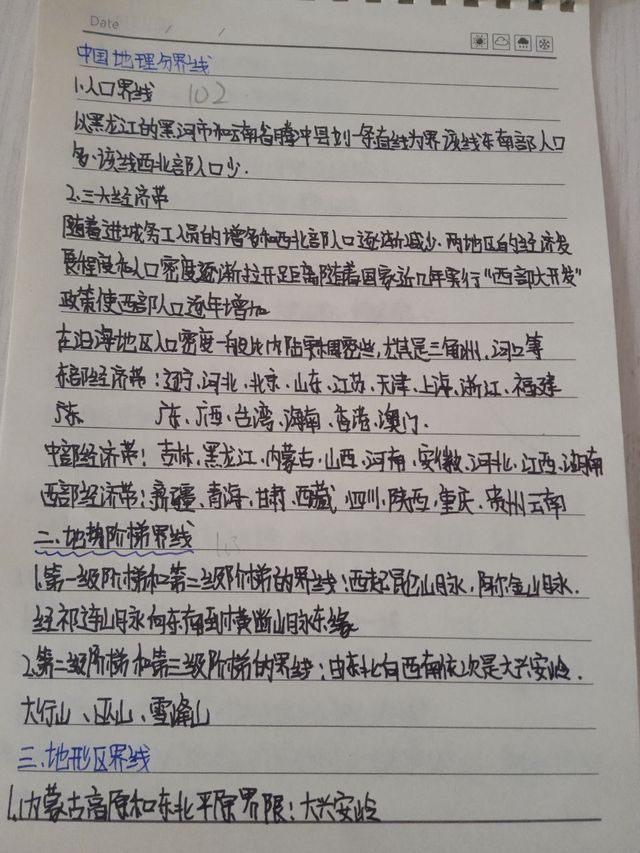 Date / /
中国地理分界线
1.人口界线 102
以黑龙江的黑河市和云南省腾冲县划一条直线为界该线东南部人口
多.该线西北部人口少.
2.三大经济带
随着进城务工人员的增多和西北部人口逐渐减少.两地区的经济发
展程度和人口密度逐渐拉开距离随着国家近几年实行“西部大开发”
政策使西部人口逐年增加
在沿海地区人口密度一般比内陆要稠密些,尤其是三角州、河口等
东部经济带:辽宁、河北、北京、山东、江苏、天津、上海、浙江、福建
广东 广东、广西、台湾、海南、香港、澳门.
中部经济带:吉林、黑龙江、内蒙古、山西、河南、安徽、河北、江西、湖南
西部经济带:新疆、青海、甘肃、西藏、四川、陕西、重庆、贵州云南
二、地势阶梯界线 103
1.第一级阶梯和第二级阶梯的界线:西起昆仑山脉,阿尔金山脉.
经祁连山脉向东南到横断山脉东缘
2.第二级阶梯和第三级阶梯的界线:由东北向西南依次是大兴安岭.
大行山、巫山、雪峰山
三、地形区界线
1.内蒙古高原和东北平原界限:大兴安岭